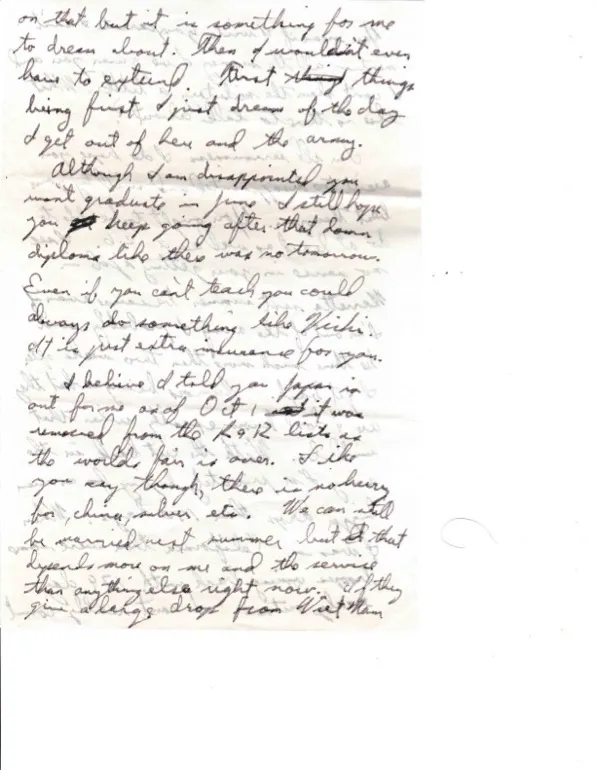 on that but it is something for me
to dream about. Then I wouldn't even
have to extend. First thing things
being first I just dream of the day
I get out of here and the army.
Although I am disappointed you
wont graduate in June I still hope
you keep going after that damn
diploma like there was no tomorrow.
Even if you can't teach you could
always do something like Vicki.
It is just extra insurance for you.
I believe I told you Japan is
out for me as of Oct 1 it was
removed from the R & R lists as
the worlds fair is over. Like
you say though, there is no hurry
for, china, silver, etc. We can still
be married next summer but that
depends more on me and the service
than anything else right now. If they
give a large drop from Viet Nam